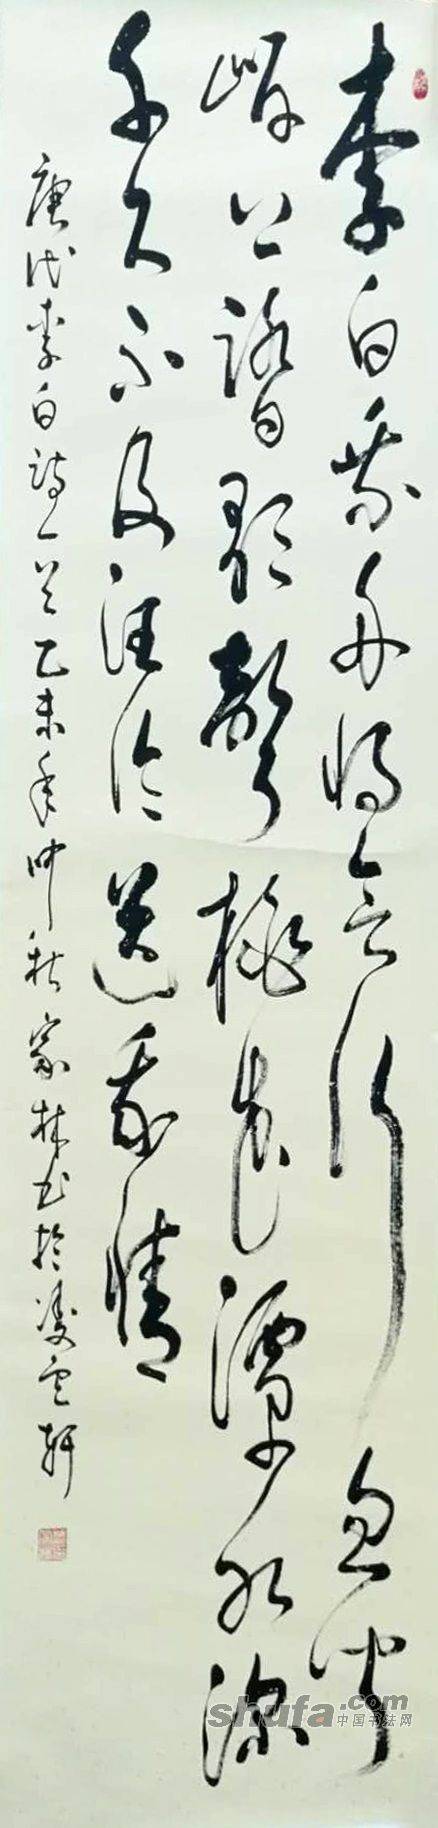 李白乘舟將欲行忽聞
岸上踏歌聲桃花潭水深
千尺不及汪倫送我情
唐代李白詩一首乙未年仲秋家林书於凌雲軒
shufa.com
中国书法网